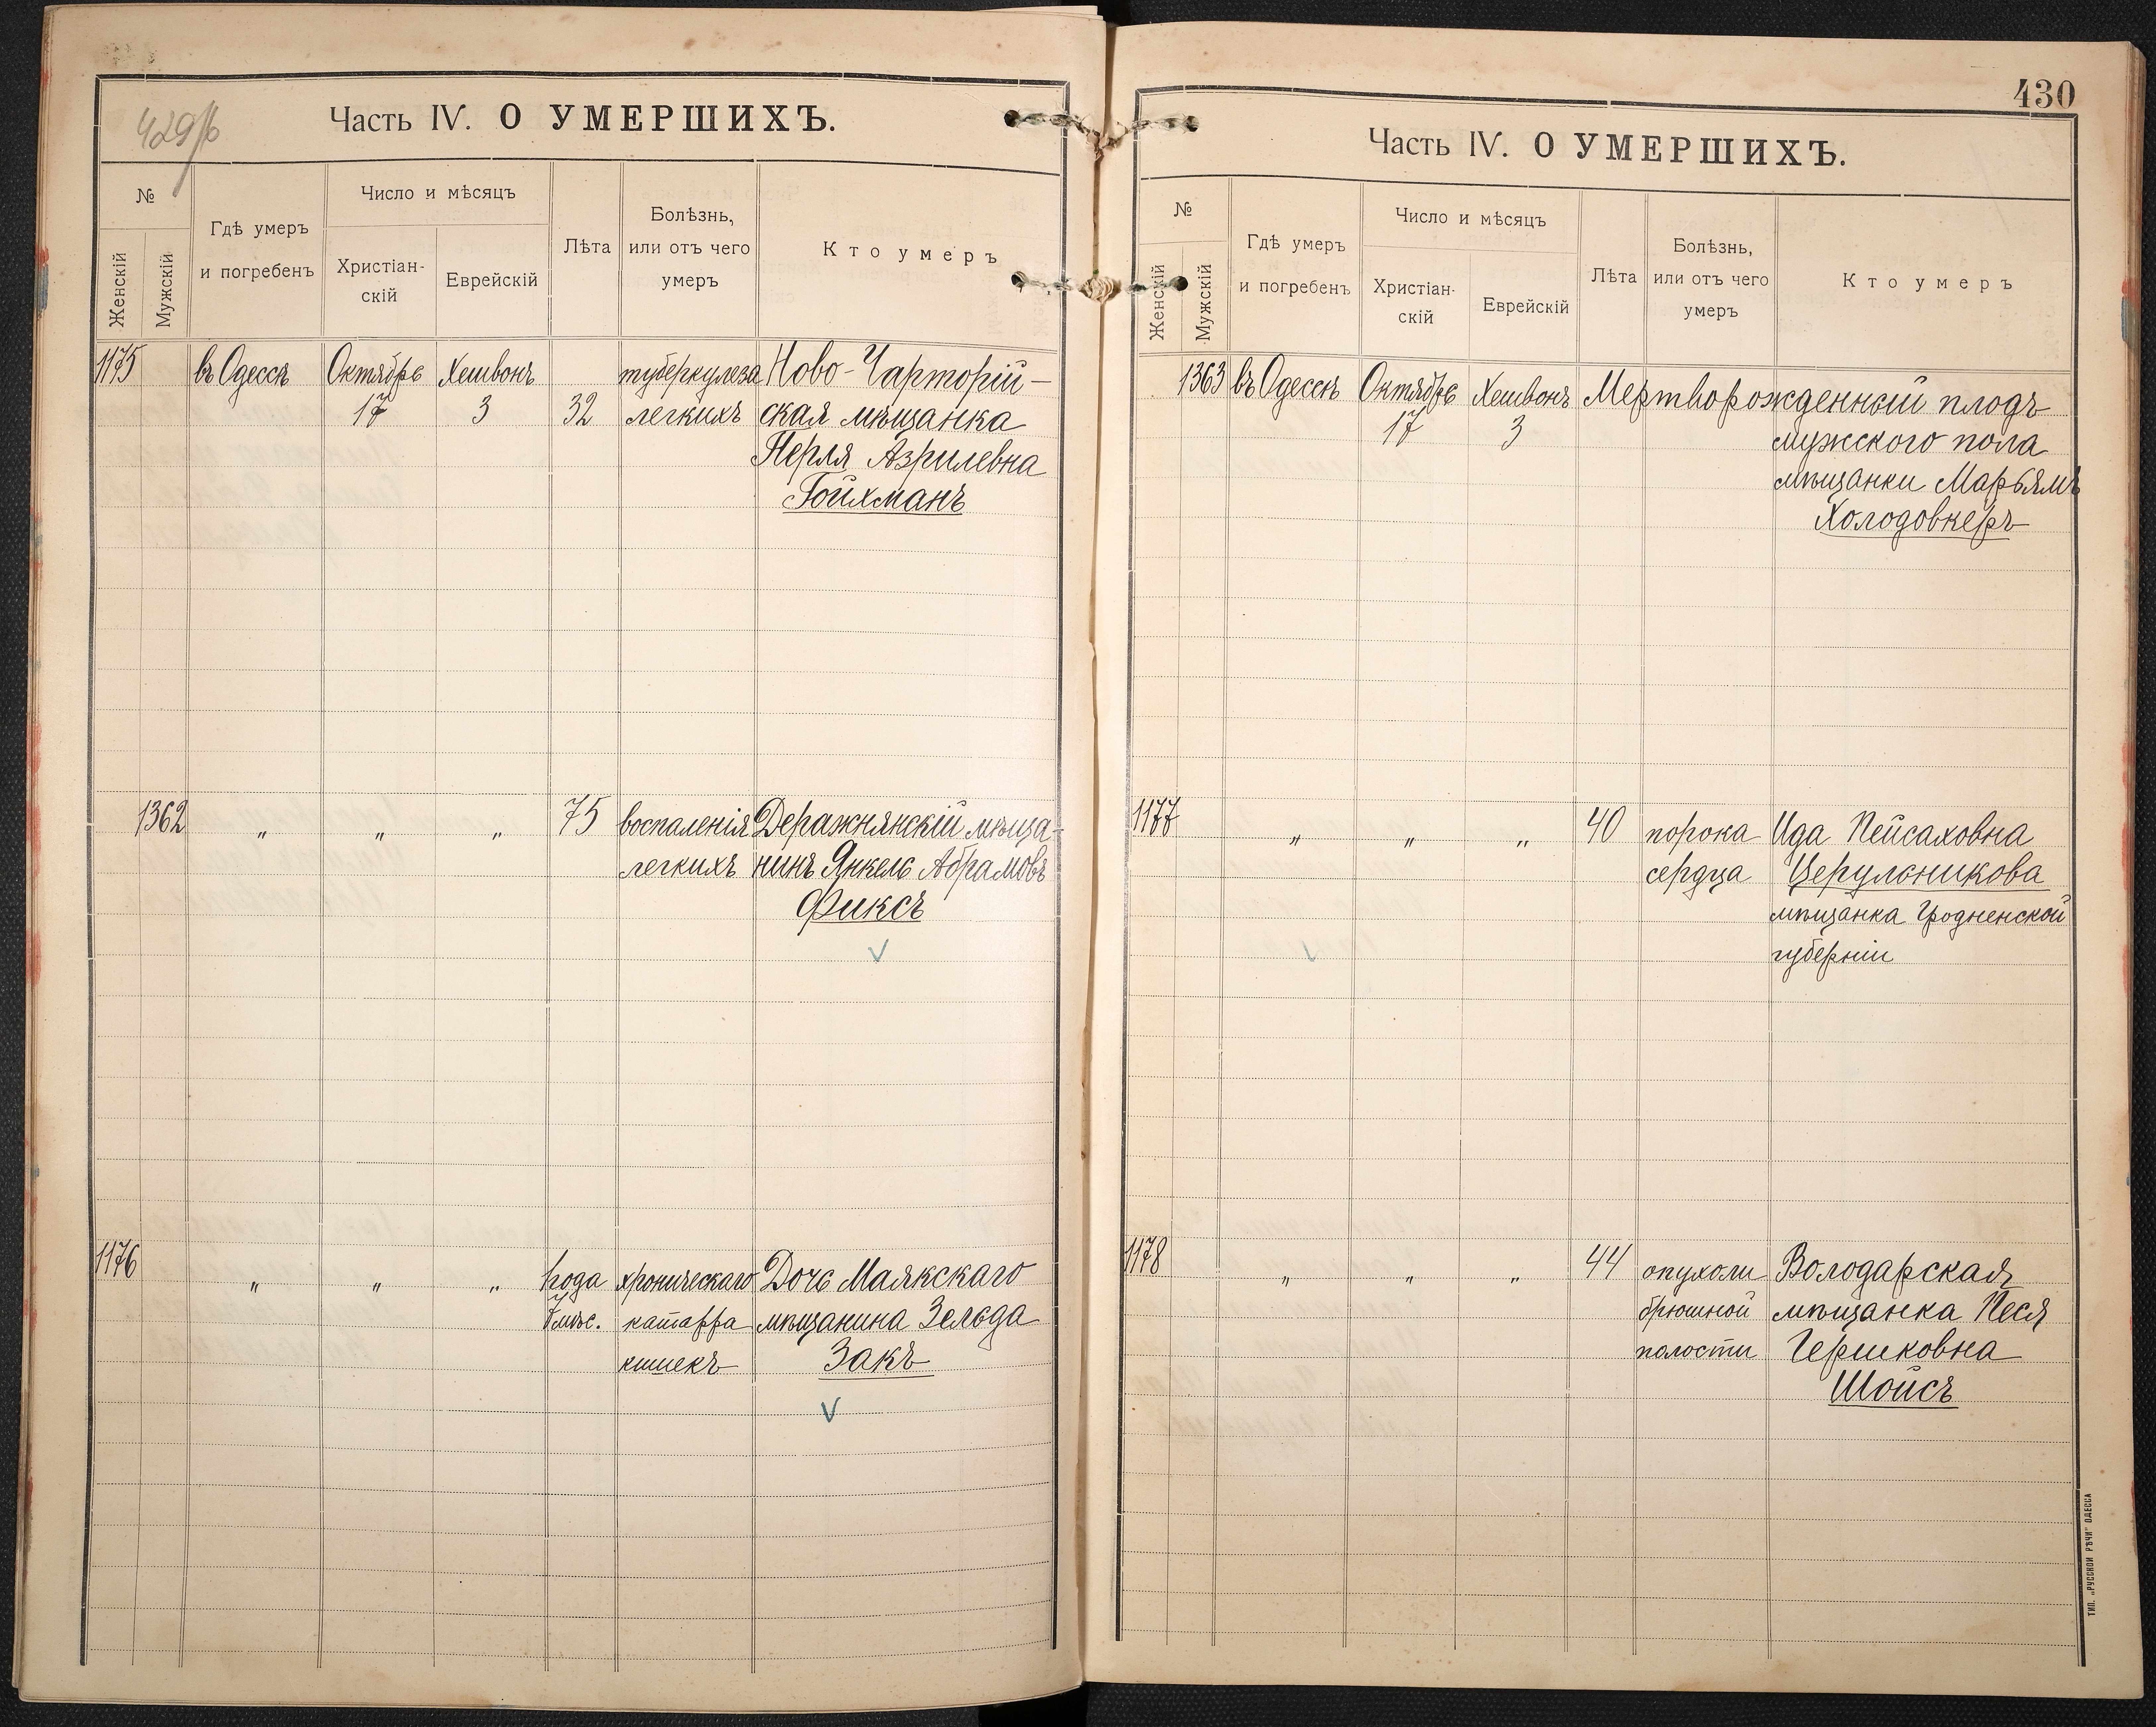 429/б
Часть IV. О УМЕРШИХЪ.
№
Женскій
Мужскій
Гдѣ умеръ
и погребенъ
Число и мѣсяцъ
Христіан-
скій
Еврейскій
Лѣта
Болѣзнь,
или отъ чего
умеръ
Кто умеръ
1175 въ Одессѣ Октябрь Хешвонъ туберкулеза Ново-Чарторій-
17 3 32 легкихъ ская мѣщанка
Перля Азрилевна
Гойхманъ
1362 " " " 75 воспаленія Деражнянскій мѣща-
легкихъ нинъ Янкель Абрамовъ
Фиксъ
1176 " " " года хроническаго Дочь Маякскаго
мѣс. катарра мѣщанина Зельда
кишекъ Закъ
430
Часть IV. О УМЕРШИХЪ.
№
Женскій
Мужскій
Гдѣ умеръ
и погребенъ
Число и мѣсяцъ
Христіан-
скій
Еврейскій
Лѣта
Болѣзнь,
или отъ чего
умеръ
Кто умеръ
1363 въ Одессѣ Октябрь Хешвонъ Мертворожденный плодъ
17 3 мужского пола
мѣщанки Марьямъ
Холодовкеръ
1177 " " " 40 порока Ида Пейсаховна
сердца Церульникова
мѣщанка Гродненской
губерніи
1178 " " " 44 опухоли Володарская
брюшной мѣщанка Песя
полости Гершковна
Шойсъ
ТИП. „РУССКОЙ РѢЧИ" ОДЕССА